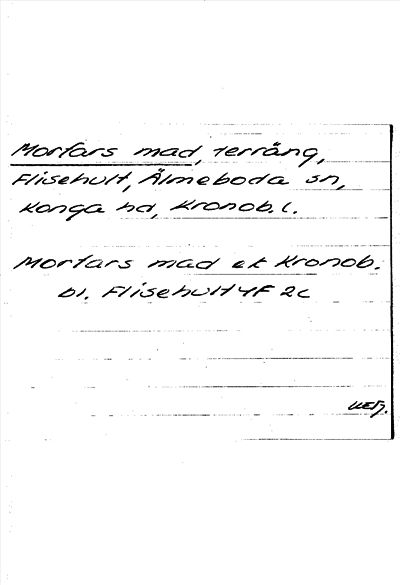 Morfars mad, terräng,
Flisehult, Älmeboda sn,
Konga hd, Kronob. l.
Morfars mad ek Kronob.
bl. Flisehult 4F 2c